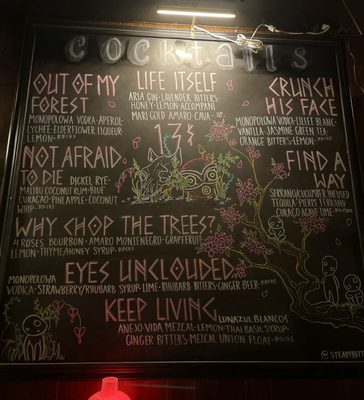 cocktails
OUT OF MY
FOREST
MONOPOLOWA VODKA-APEROL-
LYCHEE-ELDERFLOWER LIQUEUR-
LEMON-ROCKS
LIFE ITSELF
ARIA GIN-LAVENDER BITTERS-
HONEY-LEMON-ACCOMPANI
MARI GOLD AMARO CAVA-
13
CRUNCH
HIS FACE
MONOPOLOWA VODKA-LILLET BLANC-
VANILLA JASMINE GREEN TEA-
ORANGE BITTERS-ROCKS
NOT AFRAID
TO DIE
DICKEL RYE-
MALIBU COCONUT RUM-BLUE
CURAÇAO-PINEAPPLE-COCONUT
WHIP-ROCKS
FIND A
WAY
SERRANO/CUCUMBER INFUSED
TEQUILA-PIERRE FERRAND
CURAÇAO-AGAVE-LIME-ROCKS
WHY CHOP THE TREES?
4 ROSES BOURBON-AMARO MONTENEGRO-GRAPEFRUIT-
LEMON-THYME/HONEY SYRUP-ROCKS
EYES UNCLOUDED
MONOPOLOWA
VODKA-STRAWBERRY/RHUBARB SYRUP-LIME-RHUBARB BITTERS-GINGER BEER-ROCKS
KEEP LIVING
LUNAZUL BLANCO
AÑEJO-VIDA MEZCAL-LEMON-THAI BASIL SYRUP-
GINGER BITTERS-MEZCAL UNION FLOAT-ROCKS